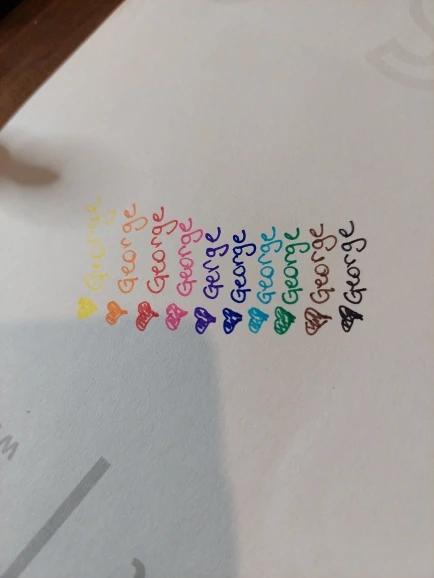 George
George
George
George
Gerge
George
George
George
George
George